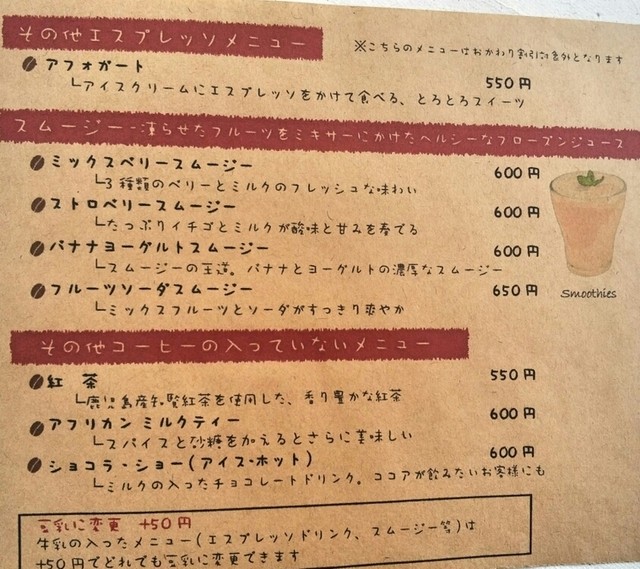 その他エスプレッソメニュー
※こちらのメニューはおかわり割引対象外となります
アフォガート 550円
└アイスクリームにエスプレッソをかけて食べる、とろとろスイーツ
スムージー・・凍らせたフルーツをミキサーにかけたヘルシーなフローズンジュース
ミックスベリースムージー 600円
└3種類のベリーとミルクのフレッシュな味わい
ストロベリースムージー 600円
└たっぷりイチゴとミルクが酸味と甘みを奏でる
バナナヨーグルトスムージー 600円
└スムージーの王道。バナナとヨーグルトの濃厚なスムージー
フルーツソーダスムージー 650円
└ミックスフルーツとソーダがすっきり爽やか
Smoothies
その他コーヒーの入っていないメニュー
紅 茶 550円
└鹿児島産知覧紅茶を使用した、香り豊かな紅茶
アフリカン ミルクティー 600円
└スパイスと砂糖を加えるとさらに美味しい
ショコラ・ショー(アイス・ホット) 600円
└ミルクの入ったチョコレートドリンク。ココアが飲みたいお客様にも
豆乳に変更 +50円
牛乳の入ったメニュー(エスプレッソドリンク、スムージー等)は
+50円でどれでも豆乳に変更できます